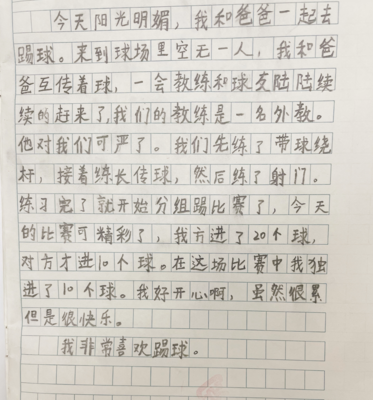 今天阳光明媚，我和爸爸一起去
踢球。来到球场里空无一人，我和爸
爸互传着球，一会教练和球友陆陆续
续的赶来了，我们的教练是一名外教。
他对我们可严了。我们先练了带球绕
杆，接着练长传球，然后练了射门。
练习完了就开始分组踢比赛了，今天
的比赛可精彩了，我方进了20个球，
对方才进10个球。在这场比赛中我独
进了10个球。我好开心啊，虽然很累
但是很快乐。
我非常喜欢踢球。